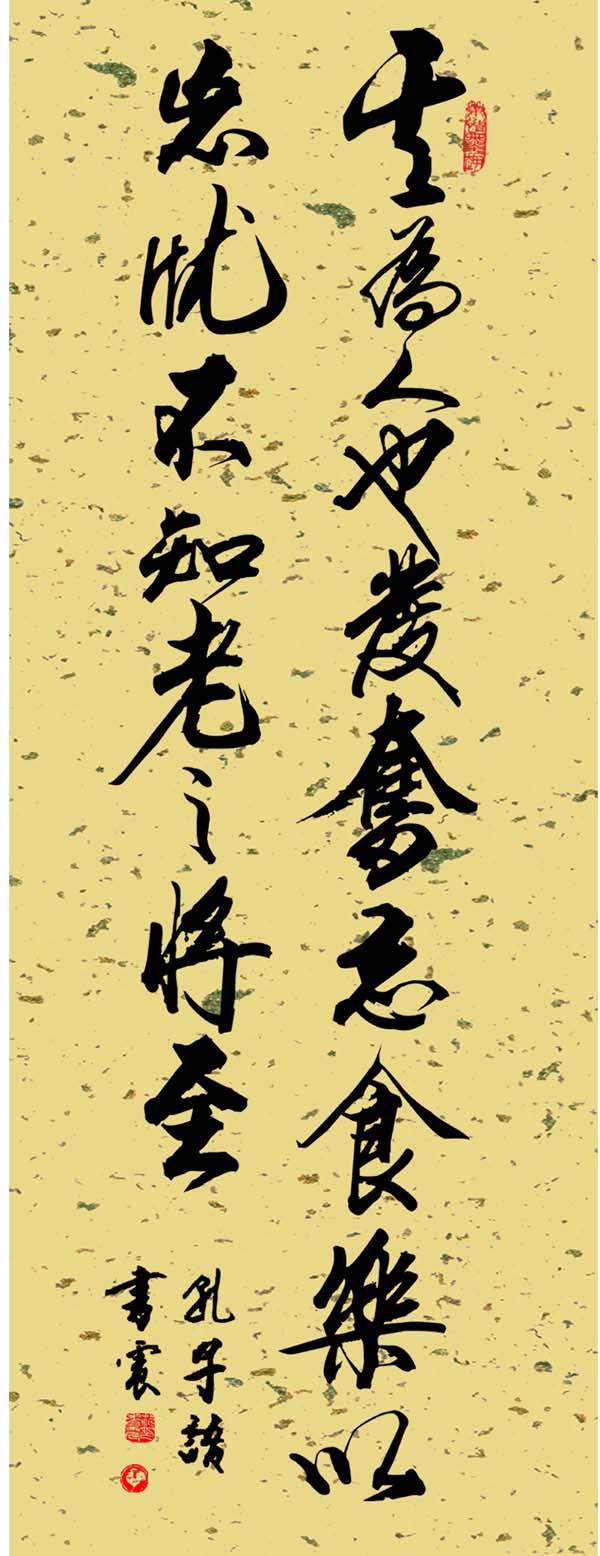 其為人也發奮忘食樂以
忘忧不知老之將至
孔子語
書震